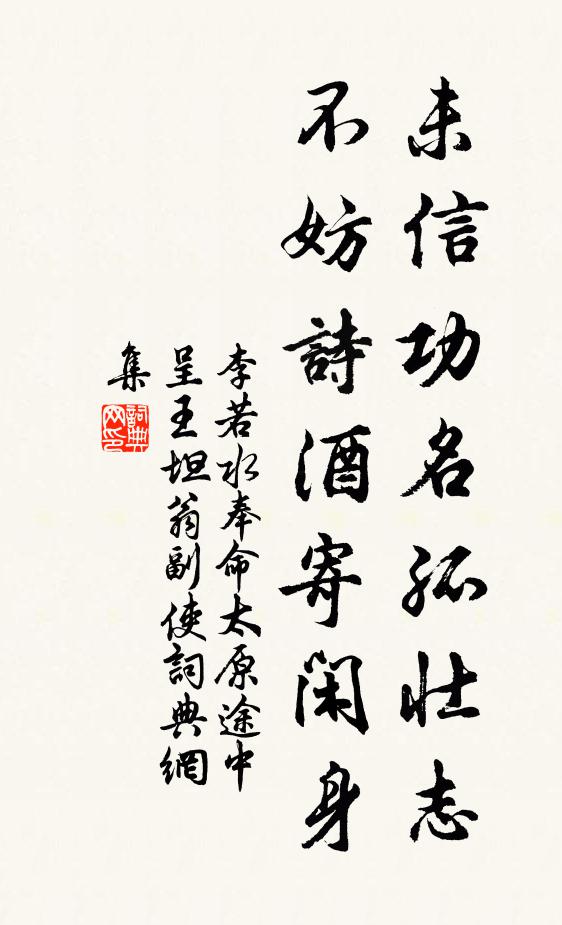 未信功名孤壮志
不妨詩酒寄閑身
李若水奉命太原途中
呈王坦翁副使詞典網
集
詞典
网印